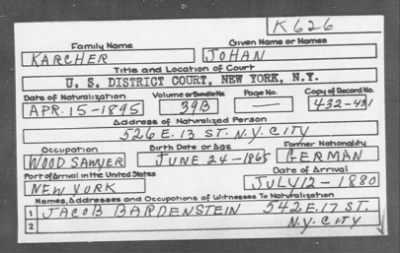 K626
Family Name Given Name or Names
KARCHER JOHAN
Title and Location of Court
U. S. DISTRICT COURT, NEW YORK, N.Y.
Date of Naturalization Volume or Bundle No. Page No. Copy of Record No.
APR. 15-1895 39B — 432-431
Address of Naturalized Person
526 E. 13 ST. N.Y. CITY
Occupation Birth Date or Age Former Nationality
WOOD SAWYER JUNE 24-1865 GERMAN
Port of Arrival in the United States Date of Arrival
NEW YORK JULY 12-1880
Names, Addresses and Occupations of Witnesses To Naturalization
1 JACOB BARDENSTEIN 542 E. 17 ST.
2 N.Y. CITY